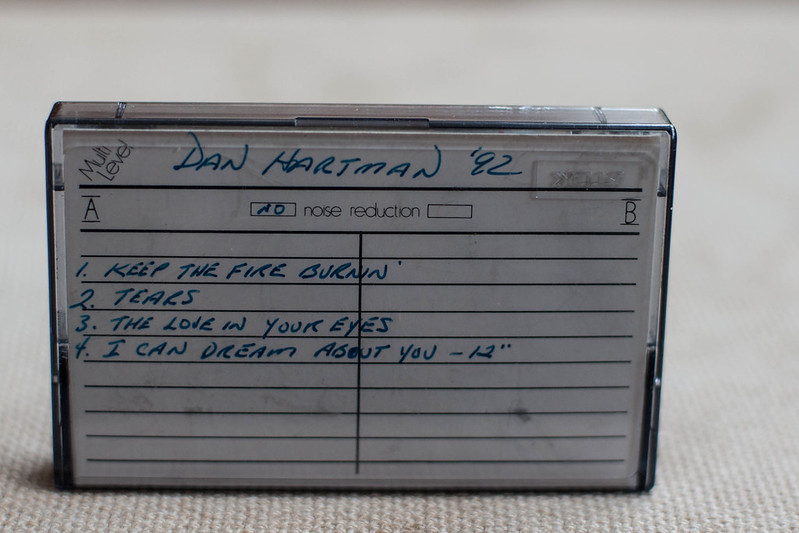 Multi
Level
DAN HARTMAN '92
A NO noise reduction B
1. KEEP THE FIRE BURNIN'
2. TEARS
3. THE LOVE IN YOUR EYES
4. I CAN DREAM ABOUT YOU - 12"